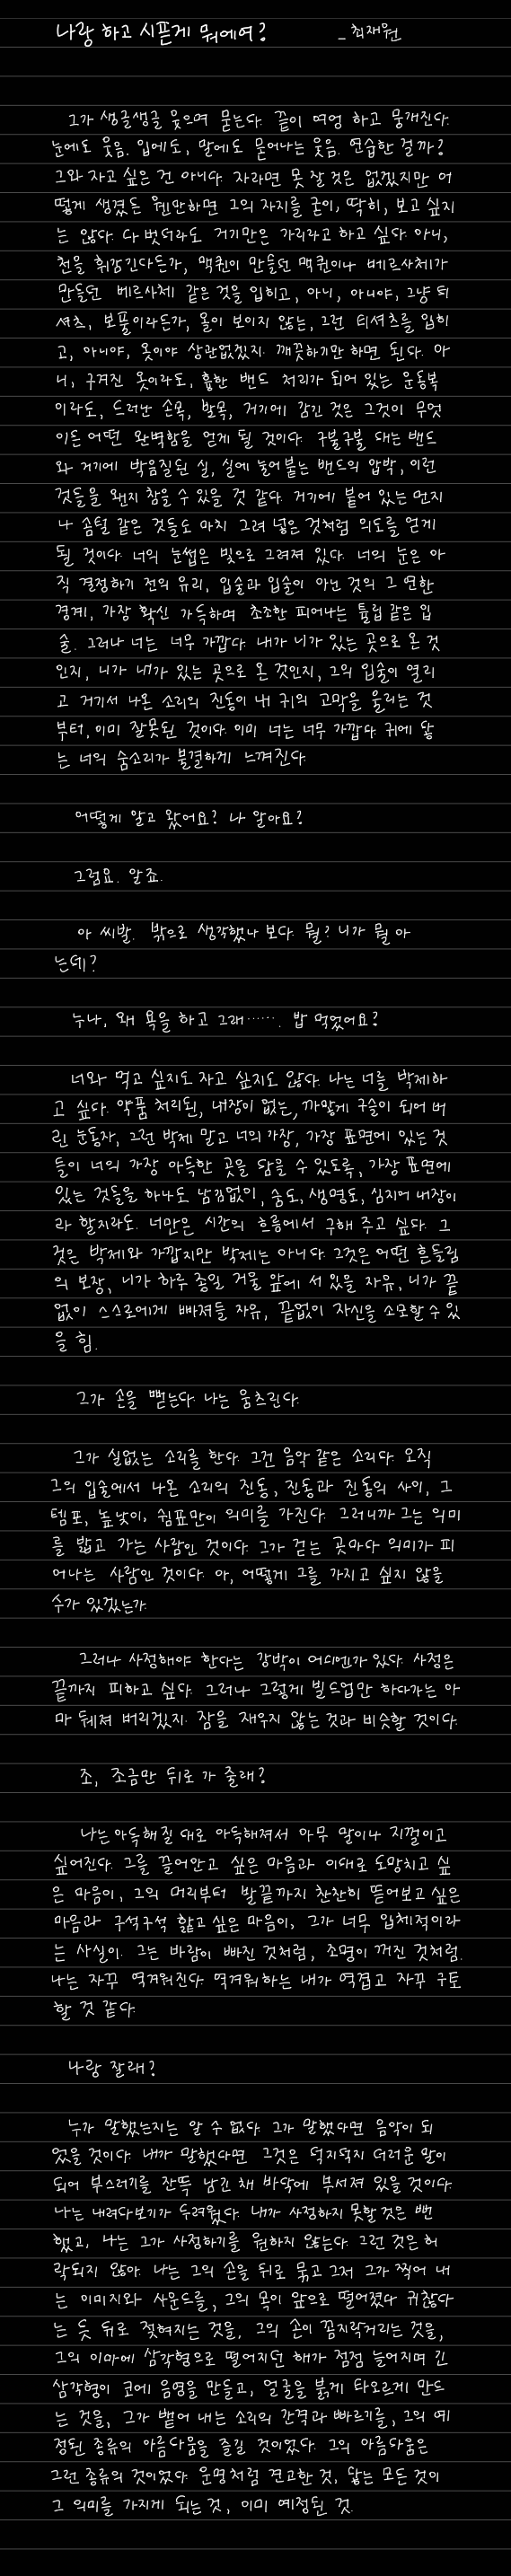 나랑 하고 시픈게 뭐에여? _ 최재원
그가 생글생글 웃으며 묻는다. 끝이 여엉 하고 뭉개진다.
눈에도 웃음. 입에도, 말에도 묻어나는 웃음. 연습한 걸까?
그와 자고 싶은 건 아니다. 자라면 못 잘 것은 없겠지만 어
떻게 생겼든 웬만하면 그의 자지를 굳이, 딱히, 보고 싶지
는 않다. 다 벗더라도 거기만은 가리라고 하고 싶다. 아니,
천을 휘감긴다든가, 맥퀸이 만들던 맥퀸이나 베르사체가
만들던 베르사체 같은 것을 입히고, 아니, 아니야, 그냥 티
셔츠, 보풀이라든가, 올이 보이지 않는, 그런 티셔츠를 입히
고, 아니야, 옷이야 상관없겠지. 깨끗하기만 하면 된다. 아
니, 구겨진 옷이라도, 흉한 밴드 처리가 되어 있는 운동복
이라도, 드러난 손목, 발목, 거기에 감긴 것은 그것이 무엇
이든 어떤 완벽함을 얻게 될 것이다. 구불구불 돼는 밴드
와 거기에 박음질된 실, 실에 눌어붙는 밴드의 압박, 이런
것들을 왠지 참을 수 있을 것 같다. 거기에 붙어 있는 먼지
나 솜털 같은 것들도 마치 그려 넣은 것처럼 의도를 얻게
될 것이다. 너의 눈썹은 빛으로 그려져 있다. 너의 눈은 아
직 결정하기 전의 유리, 입술과 입술이 아닌 것의 그 연한
경계, 가장 확신 가득하며 초조한 피어나는 튤립 같은 입
술. 그러나 너는 너무 가깝다. 내가 니가 있는 곳으로 온 것
인지, 니가 내가 있는 곳으로 온 것인지, 그의 입술이 열리
고 거기서 나온 소리의 진동이 내 귀의 고막을 울리는 것
부터, 이미 잘못된 것이다. 이미 너는 너무 가깝다. 귀에 닿
는 너의 숨소리가 불결하게 느껴진다.
어떻게 알고 왔어요? 나 알아요?
그럼요. 알죠.
아 씨발. 밖으로 생각했나 보다. 뭘? 니가 뭘 아
는데?
누나, 왜 욕을 하고 그래……. 밥 먹었어요?
너와 먹고 싶지도 자고 싶지도 않다. 나는 너를 박제하
고 싶다. 약품 처리된, 내장이 없는, 까맣게 구슬이 되어 버
린 눈동자, 그런 박제 말고 너의 가장, 가장 표면에 있는 것
들이 너의 가장 아득한 곳을 담을 수 있도록, 가장 표면에
있는 것들을 하나도 남김없이, 숨도, 생명도, 심지어 내장이
라 할지라도. 너만은 시간의 흐름에서 구해 주고 싶다. 그
것은 박제와 가깝지만 박제는 아니다. 그것은 어떤 흔들림
의 보장, 니가 하루 종일 거울 앞에 서 있을 자유, 니가 끝
없이 스스로에게 빠져들 자유, 끝없이 자신을 소모할 수 있
을 힘.
그가 손을 뻗는다. 나는 움츠린다.
그가 실없는 소리를 한다. 그건 음악 같은 소리다. 오직
그의 입술에서 나온 소리의 진동, 진동과 진동의 사이, 그
템포, 높낮이, 쉼표만이 의미를 가진다. 그러니까 그는 의미
를 밟고 가는 사람인 것이다. 그가 걷는 곳마다 의미가 피
어나는 사람인 것이다. 아, 어떻게 그를 가지고 싶지 않을
수가 있겠는가.
그러나 사정해야 한다는 강박이 어디엔가 있다. 사정은
끝까지 피하고 싶다. 그러나 그렇게 빌드업만 하다가는 아
마 뒈져 버리겠지. 잠을 재우지 않는 것과 비슷할 것이다.
조, 조금만 뒤로 가 줄래?
나는 아득해질 대로 아득해져서 아무 말이나 지껄이고
싶어진다. 그를 끌어안고 싶은 마음과 이대로 도망치고 싶
은 마음이, 그의 머리부터 발끝까지 찬찬히 뜯어보고 싶은
마음과 구석구석 핥고 싶은 마음이, 그가 너무 입체적이라
는 사실이. 그는 바람이 빠진 것처럼, 조명이 꺼진 것처럼.
나는 자꾸 역겨워진다. 역겨워하는 내가 역겹고 자꾸 구토
할 것 같다.
나랑 잘래?
누가 말했는지는 알 수 없다. 그가 말했다면 음악이 되
었을 것이다. 내가 말했다면 그것은 덕지덕지 더러운 말이
되어 부스러기를 잔뜩 남긴 채 바닥에 부서져 있을 것이다.
나는 내려다보기가 두려웠다. 내가 사정하지 못할 것은 뻔
했고, 나는 그가 사정하기를 원하지 않는다. 그런 것은 허
락되지 않아. 나는 그의 손을 뒤로 묶고 그저 그가 찍어 내
는 이미지와 사운드를, 그의 목이 앞으로 떨어졌다 귀찮다
는 듯 뒤로 젖혀지는 것을, 그의 손이 꼼지락거리는 것을,
그의 이마에 삼각형으로 떨어지던 해가 점점 늘어지며 긴
삼각형이 코에 음영을 만들고, 얼굴을 붉게 타오르게 만드
는 것을, 그가 뱉어 내는 소리의 간격과 빠르기를, 그의 예
정된 종류의 아름다움을 즐길 것이었다. 그의 아름다움은
그런 종류의 것이었다. 운명처럼 견고한 것, 닿는 모든 것이
그 의미를 가지게 되는 것, 이미 예정된 것.